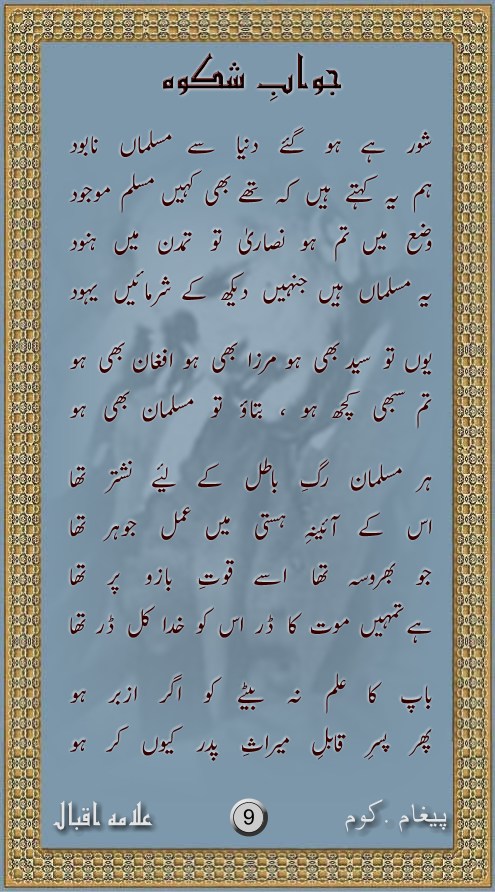 جوابِ شکوہ
شور ہے ہو گئے دنیا سے مسلماں نابود
ہم یہ کہتے ہیں کہ تھے بھی کہیں مسلم موجود
وضع میں تم ہو نصاریٰ تو تمدن میں ہنود
یہ مسلماں ہیں جنہیں دیکھ کے شرمائیں یہود
یوں تو سید بھی ہو مرزا بھی ہو افغان بھی ہو
تم سبھی کچھ ہو ، بتاؤ تو مسلمان بھی ہو
ہر مسلمان رگِ باطل کے لیئے نشتر تھا
اس کے آئینۂِ ہستی میں عمل جوہر تھا
جو بھروسہ تھا اسے قوتِ بازو پر تھا
ہے تمہیں موت کا ڈر اس کو خدا کل ڈر تھا
باپ کا علم نہ بیٹے کو اگر ازبر ہو
پھر پسرِ قابلِ میراثِ پدر کیوں کر ہو
پیغام .کوم
9
علامہ اقبال